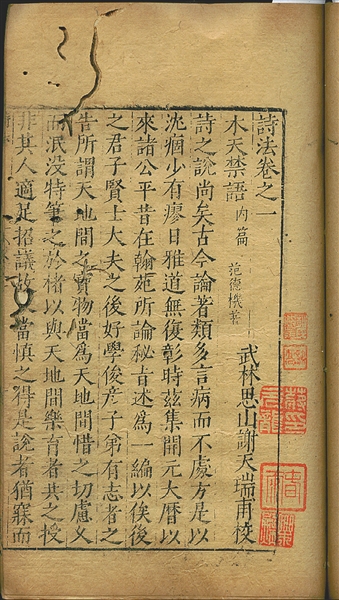 詩法卷之一
木天禁語內篇 范德機著 武林思山謝天瑞甫校
詩之說尚矣古今論著類多言病而不處方是以
沉痼少有瘳日雅道無復彰時玆集開元大曆以
來諸公平昔在翰苑所論秘旨述為一編以俟後
之君子賢士大夫之後好學俊彥子弟有志者之
告所謂天地間之寶物當為天地間惜之切慮久
而泯没特筆之於楮以與天地間樂育者共之授
非其人適足招議故又當慎之得是說者猶寐而